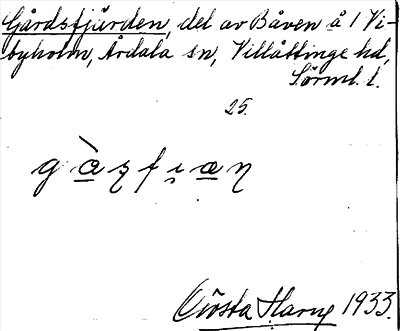 Gårdsfjärden, del av Båven å 1 Vi-
byholm, Årdala sn, Villåttinge hd,
Sörml. l.
25.
Gösta Harng 1933.